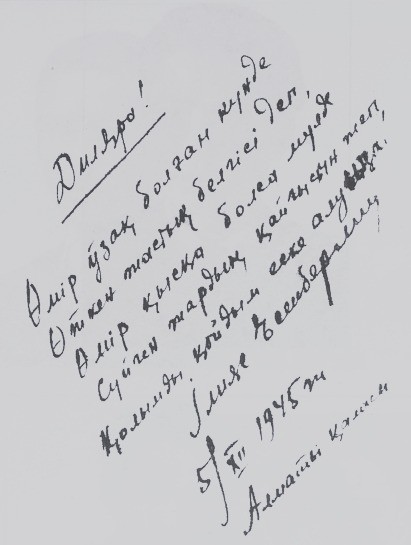 Диляра!
Өмір ұзақ болған күнде
Өткен жастың белгісі деп,
Өмір қысқа болса мүлде
Сүйген жардың қайғысын жеп,
Қолымды қойдым еске алуға.
Ілияс Есенберлин
5/XII 1945 ж
Алматы қаласы